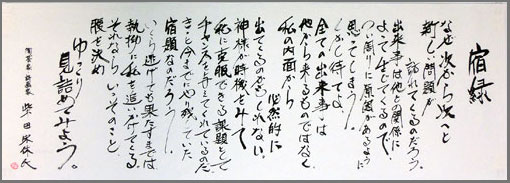 宿縁
なぜ次から次へと
新しい問題が
訪れてくるのだろう。
出来事は他との関係に
よって生じてくるので、
つい周りに原因があるように
思ってしまう。
しかし待てよ
全ての出来事は
他から来るものではなく
私の内面から
必然的に
出てくるのかもしれない。
神様が時機をみて
私に克服できる課題として
チャンスを与えてくれているのだ
きっと今までにやり残していた
宿題なのだろう。
いくら逃げても果たすまでは
執拗に私を追いかけてくる
それならいっそのこと
腰を決め
ゆっくり
見詰めてみよう。
陶芸家・詩画家 柴田